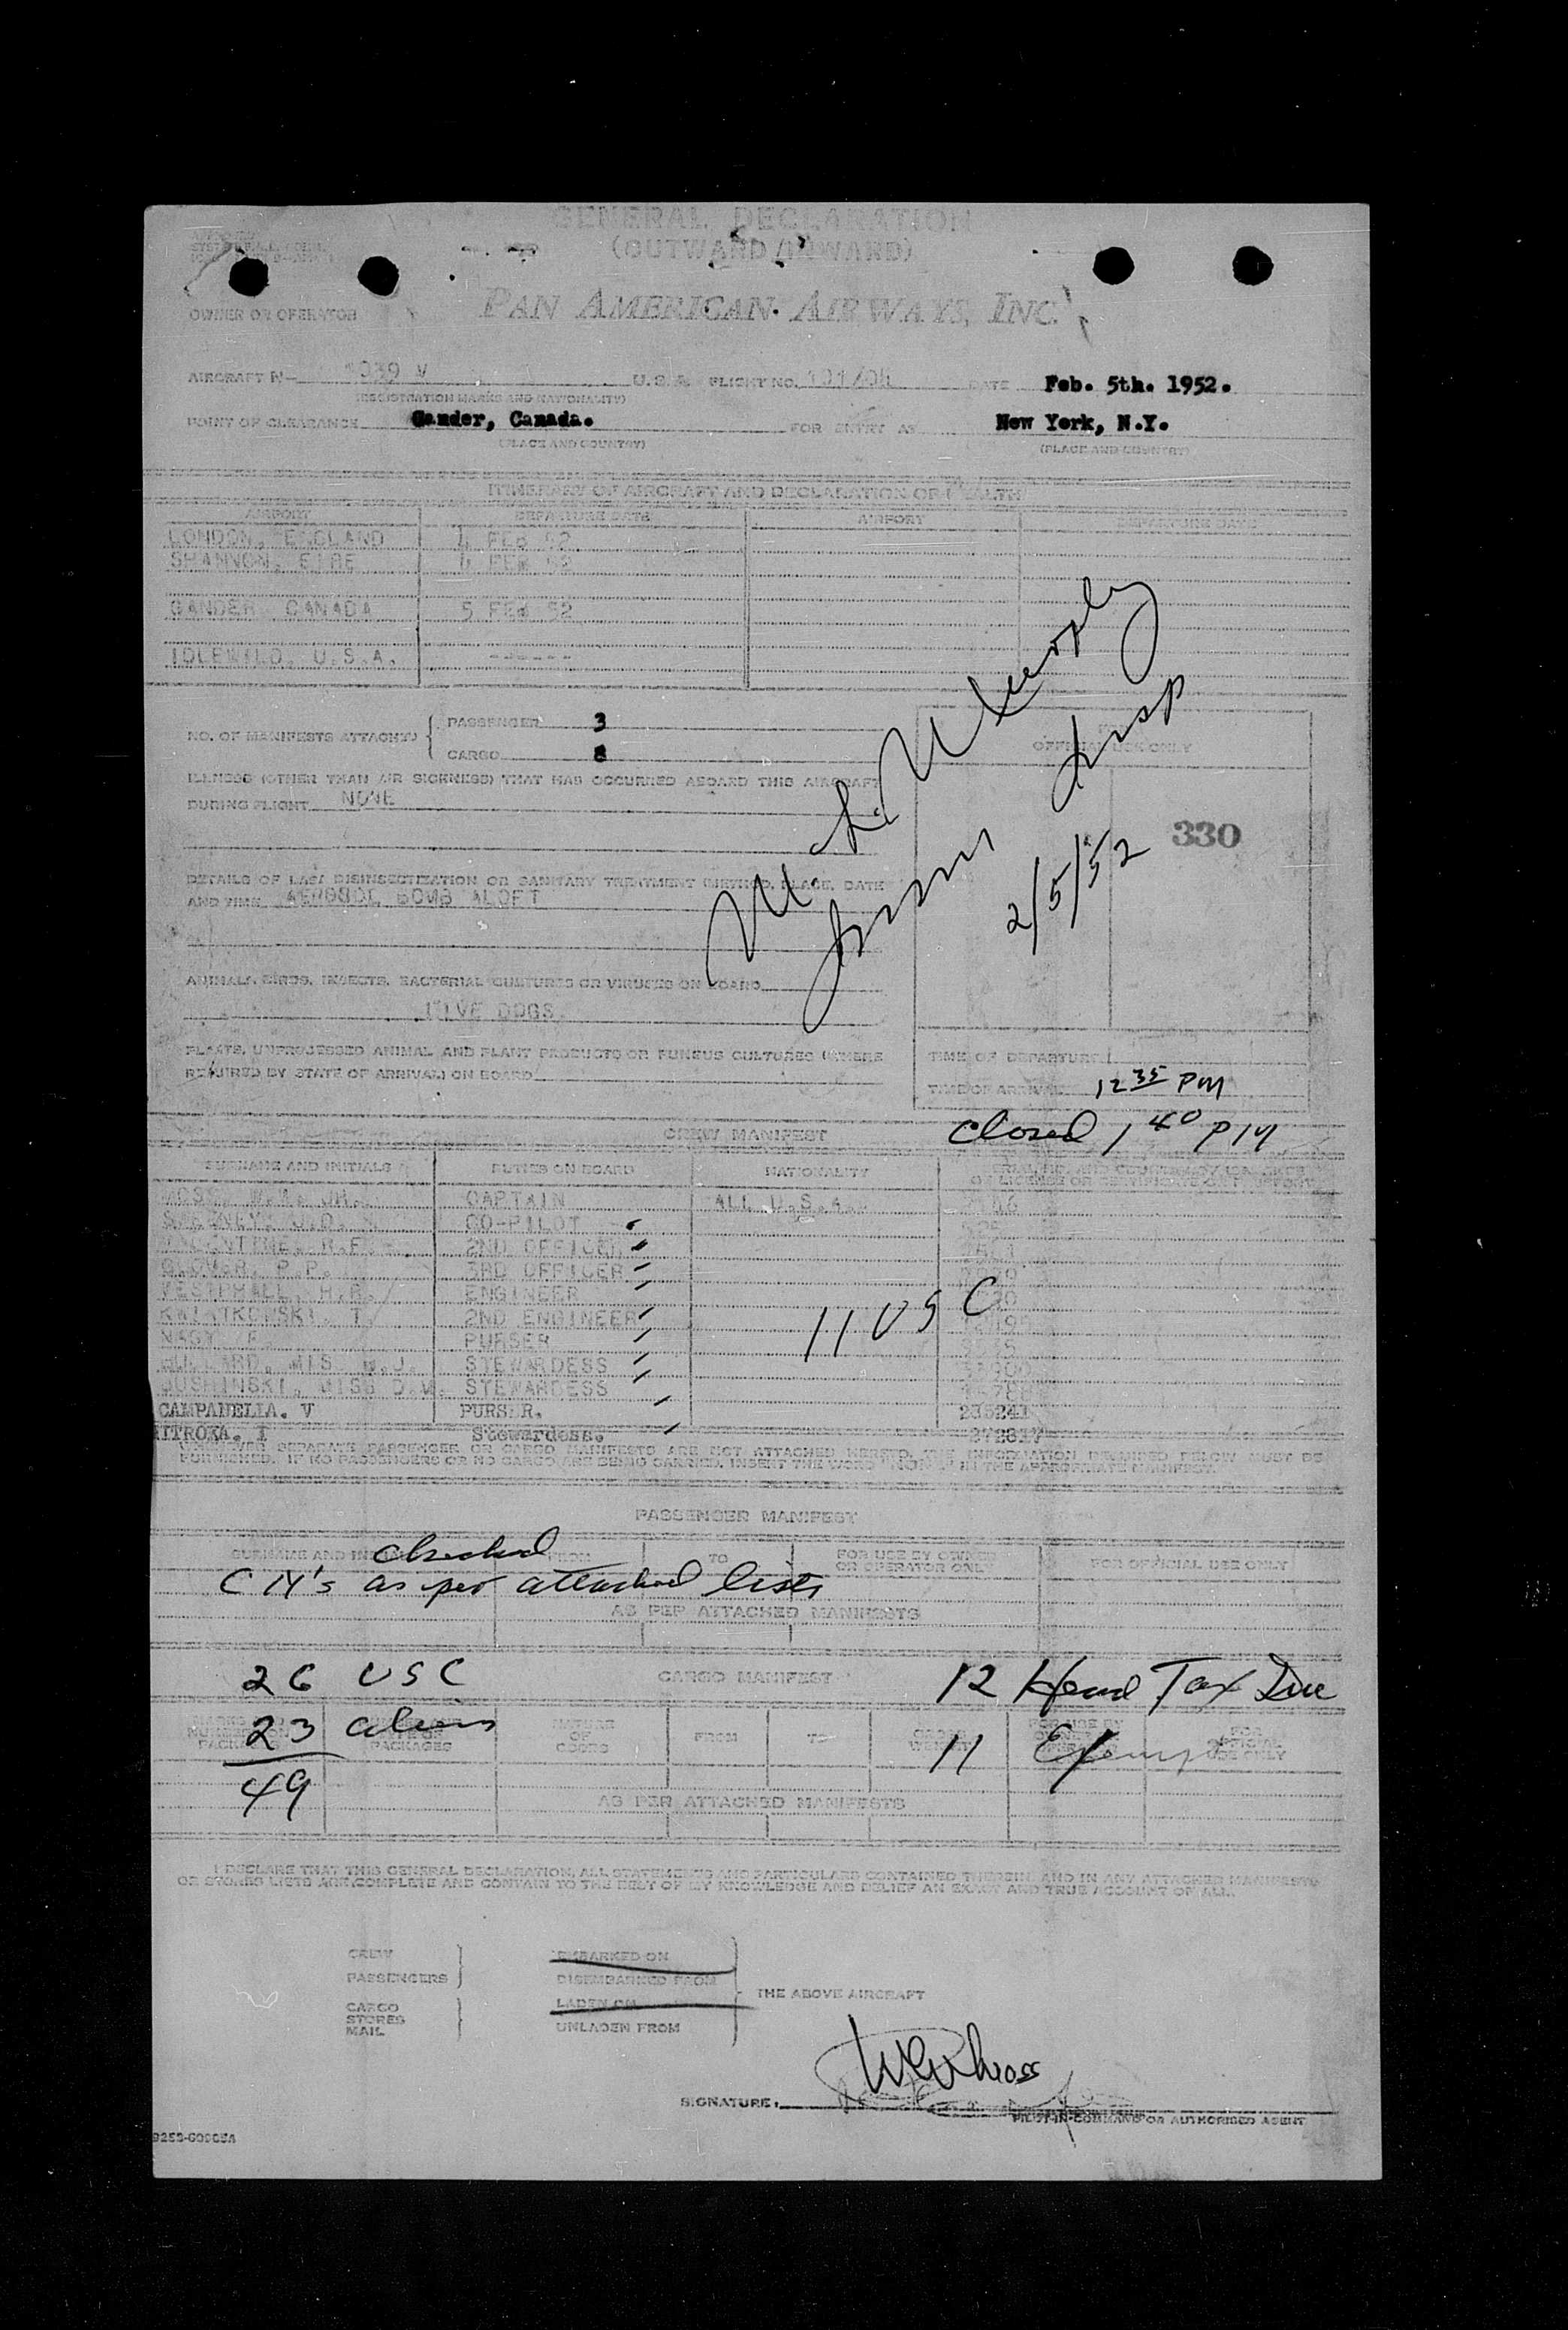 GENERAL DECLARATION
(OUTWARD/INWARD)
OWNER OR OPERATOR PAN AMERICAN AIRWAYS, INC.
AIRCRAFT N- 1039 V U.S.A. FLIGHT NO. 101/04 DATE Feb. 5th. 1952.
(REGISTRATION MARKS AND NATIONALITY)
POINT OF CLEARANCE Gander, Canada. FOR ENTRY AT New York, N.Y.
(PLACE AND COUNTRY) (PLACE AND COUNTRY)
ITINERARY OF AIRCRAFT AND DECLARATION OF HEALTH
AIRPORT DEPARTURE DATE AIRPORT DEPARTURE DATE
LONDON, ENGLAND 4 FEB 52
SHANNON, EIRE 4 FEB 52
GANDER, CANADA 5 FEB 52
IDLEWILD, U.S.A. ------
NO. OF MANIFESTS ATTACHED PASSENGER 3
CARGO 8
FOR OFFICIAL USE ONLY
ILLNESS (OTHER THAN AIR SICKNESS) THAT HAS OCCURRED ABOARD THIS AIRCRAFT
DURING FLIGHT NONE
330
M. L.
Imm Insp
2/5/52
DETAILS OF LAST DISINSECTIZATION OR SANITARY TREATMENT (METHOD, PLACE, DATE
AND TIME AEROSOL BOMB ALOFT
ANIMALS, BIRDS, INSECTS, BACTERIAL CULTURES OR VIRUSES ON BOARD
DOGS
PLANTS, UNPROCESSED ANIMAL AND PLANT PRODUCTS OR FUNGUS CULTURES (WHERE
REQUIRED BY STATE OF ARRIVAL) ON BOARD
TIME OF DEPARTURE
TIME OF ARRIVAL 12 35 PM
Closed 1 40 PM
CREW MANIFEST
SURNAME AND INITIALS DUTIES ON BOARD NATIONALITY
MOSS, W.W. JR. CAPTAIN ALL U.S.A.
SWEENEY, J.D. CO-PILOT
H.F. 2ND OFFICER
GLOVER, P.P. 3RD OFFICER
WESTPHALL, H.R. ENGINEER
KWIATKOWSKI, T. 2ND ENGINEER
11 USC
NAGY PURSER
MIS STEWARDESS
MISS D.M. STEWARDESS
CAMPANELLA. V PURSER. 235241
MITROKA. I Stewardess.
(WHENEVER SEPARATE PASSENGER OR CARGO MANIFESTS ARE NOT ATTACHED HERETO, THE INFORMATION REQUIRED BELOW MUST BE
FURNISHED. IF NO PASSENGERS OR NO CARGO ARE BEING CARRIED, INSERT THE WORD "NONE" IN THE APPROPRIATE MANIFEST.
PASSENGER MANIFEST
SURNAME AND INITIALS FROM TO FOR USE BY OWNER OR OPERATOR ONLY FOR OFFICIAL USE ONLY
checked
CM's as per attached lists
AS PER ATTACHED MANIFESTS
26 USC CARGO MANIFEST 12 Head Tax Due
23 aliens 11 Exempt
NATURE OF GOODS FROM TO
49
AS PER ATTACHED MANIFESTS
I DECLARE THAT THIS GENERAL DECLARATION, ALL STATEMENTS AND PARTICULARS CONTAINED THEREIN, AND IN ANY ATTACHED MANIFESTS
OR STORES LISTS ARE COMPLETE AND CONTAIN TO THE BEST OF MY KNOWLEDGE AND BELIEF AN EXACT AND TRUE ACCOUNT OF ALL.
CREW EMBARKED ON
PASSENGERS DISEMBARKED FROM
THE ABOVE AIRCRAFT
CARGO LADEN ON
STORES
MAIL UNLADEN FROM
SIGNATURE:
PILOT-IN-COMMAND OR AUTHORISED AGENT